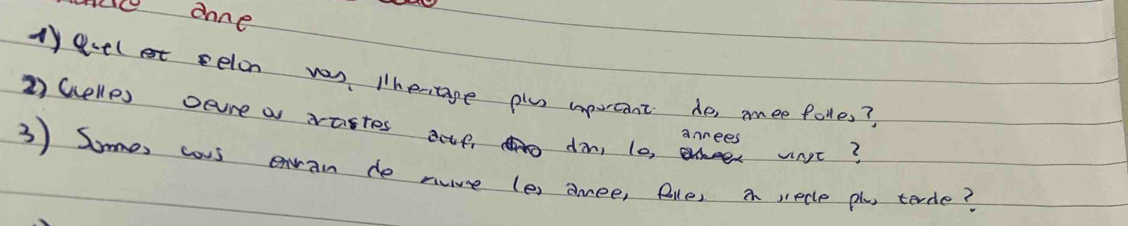 anne
1) Quel est selon vos, l'heritage plus important des annee folles?
2) Quelles oeuvre ou artistes actif dans les annees vingt?
3) Sommes vous en train de les annee, folles, un siecle plus tarde?